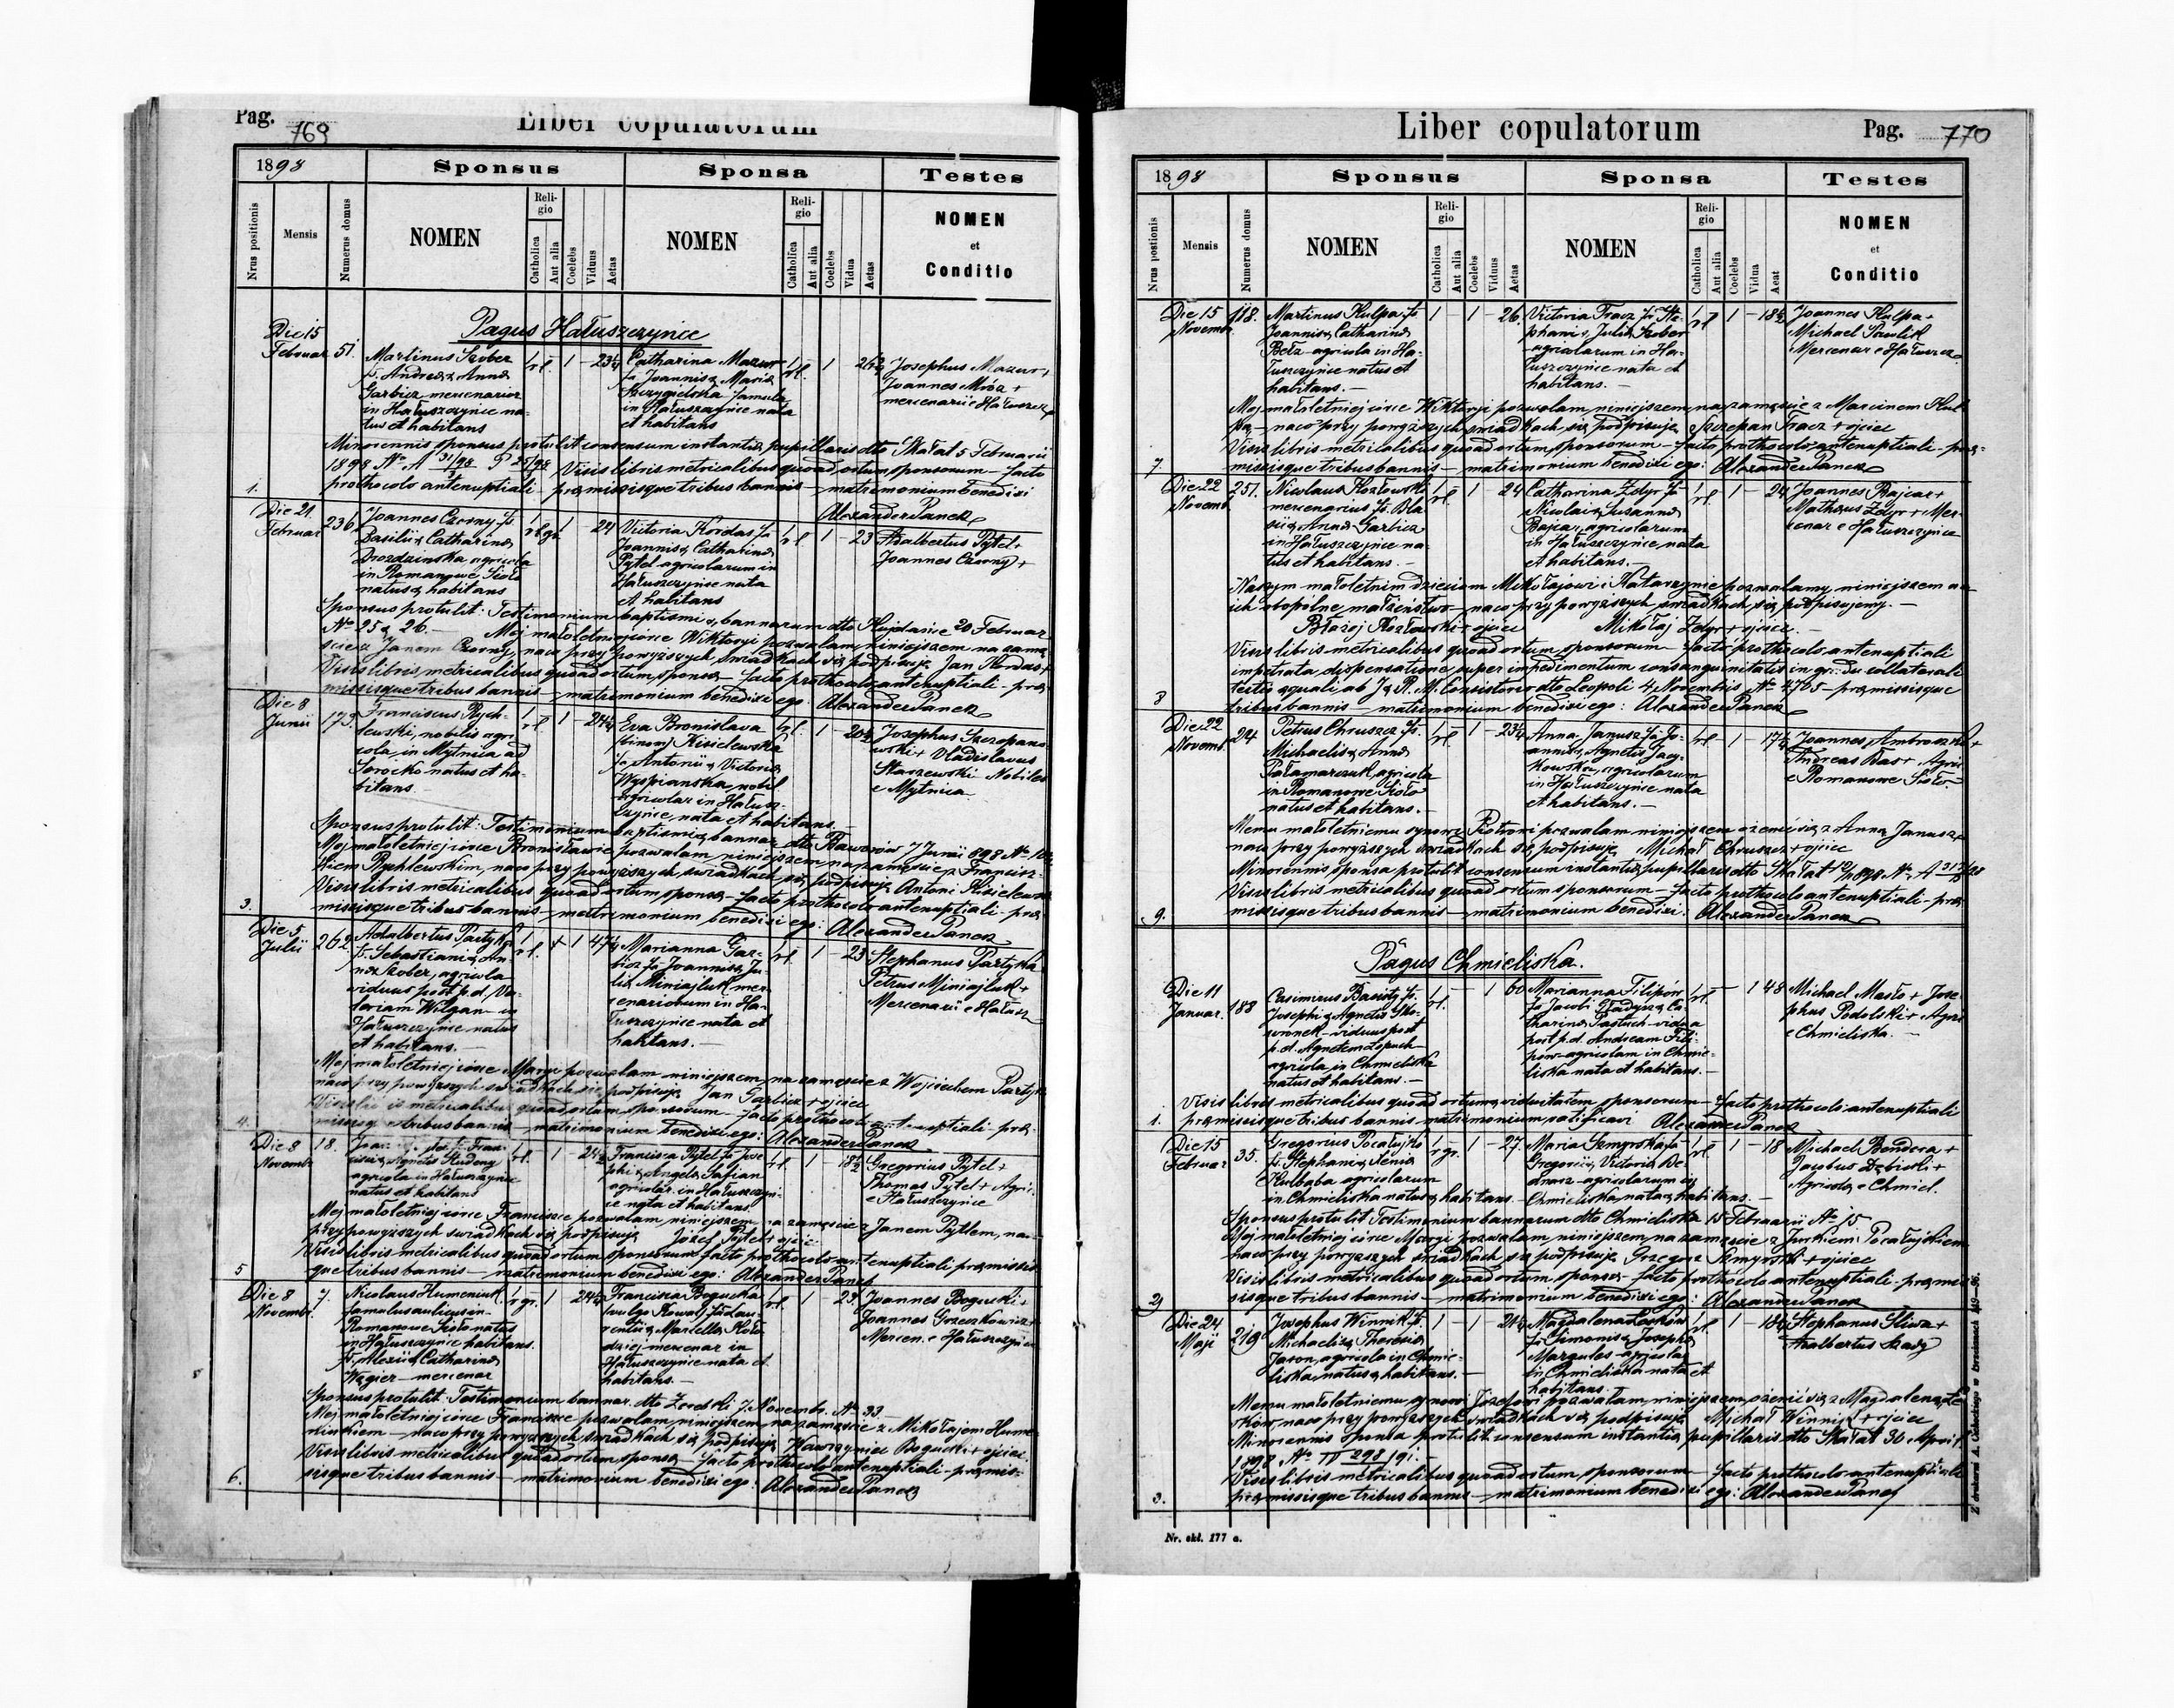 Pag. 769
Liber copulatorum
1898
Sponsus
Sponsa
Testes
Nrus positionis
Mensis
Numerus domus
NOMEN
Religio
Catholica
Aut alia
Coelebs
Viduus
Aetas
NOMEN
Religio
Catholica
Aut alia
Coelebs
Vidua
Aetas
NOMEN
et
Conditio
Pagus Hałuszczyńce
Die 15
Februar
51.
Martinus Szober
fs. Andreæ & Annæ
Garbicz mercenarior
in Hałuszczyńce na-
tus et habitans
Catharina Mazur
fa Joannis & Mariæ
Szczygielska famula
in Hałuszczyńce nata
et habitans
Josephus Mazur +
Joannes Mróz +
mercenarii e Hałuszcz
Minorennis sponsus protulit consensum instantiæ pupillaris dto Skałat 5 Februarii
1898 Visis libris metricalibus quoad ortum sponsorum – facto
prothocolo antenuptiali – præmissisque tribus bannis – matrimonium benedixi
1.
Alexander Panek
Die 21
Februar
236
Joannes Czorny fs.
Basilii & Catharinæ
Drozdzinska agricola
in Romanowe Sioło
natus & habitans
24
Victoria Kordas fa
Joannis & Catharinæ
Pytel agricolarum in
Hałuszczyńce nata
et habitans
23
Adalbertus Pytel +
Joannes Czorny +
Sponsus protulit: Testimonium baptismi & bannorum dto Hujdańce 20 Februar
No 25 & 26. – Mej małoletniej córce Wiktoryi pozwalam niniejszem na zamę
ście z Janem Czorny, naco przy powyższych świadkach się podpisuję Jan Kordas +
Visis libris metricalibus quoad ortum sponsæ – facto prothocolo antenuptiali – præ
missisque tribus bannis – matrimonium benedixi ego: Alexander Panek
Die 8
Junii
173.
Franciscus Rych-
lewski, nobilis agri
cola in Mytnica ad
Sorocko natus et ha-
bitans
Eva Bronislava
(binom) Kisielewska
fa Antonii & Victoriæ
Wyspianska nobil
agricolar in Hałusz-
czyńce nata et habitans
Josephus Szczepano
wski + Vladislavus
Staszewski Nobiles
e Mytnica
Sponsus protulit: Testimonium baptismi & bannor dto Baworów 7 Junii 898
Mej małoletniej córce Bronisławie pozwalam niniejszem na zamęście z Francisz-
kiem Rychlewskim, naco przy powyższych świadkach się podpisuję Antoni Kisielewski
Visis libris metricalibus quoad ortum sponsæ – facto prothocolo antenuptiali – præ
missisque tribus bannis – matrimonium benedixi ego: Alexander Panek
3.
Die 5
Julii
262
Adalbertus Partyka
fs. Sebastiani & An
næ Szober, agricola
viduus post p.d. Va-
leriam Wilgan in
Hałuszczyńce natus
et habitans. –
Marianna Gar-
bicz fa Joannis & Ju
liæ Miniajluk mer-
cenariorum in Ha-
łuszczyńce nata et
habitans. –
23
Stephanus Partyka
Petrus Miniajluk +
Mercenarii e Hałusz
Mej małoletniej córce Maryi pozwalam niniejszem na zamęście z Wojciechem Partyk
naco przy powyższych świadkach się podpisuję Jan Garbicz + ojciec
Visis libris metricalibus quoad ortum sponsorum – facto prothocolo antenuptiali – præ-
missisque tribus bannis – matrimonium benedixi ego: Alexander Panek
4.
Die 8
Novembr
18.
fs. Fran-
cisci & Agnetis Studeny
agricola in Hałuszczyńce
natus et habitans
Francisca Pytel fa Jose
phi & Angelæ Safian
agricolar. in Hałuszczyń-
ce nata et habitans
18½
Gregorius Pytel +
Thomas Pytel + Agri-
e Hałuszczyńce
Mej małoletniej córce Franciszce pozwalam niniejszem na zamęście z Janem Pytlem, na-
przy powyższych świadkach się podpisuję Józef Pytel + ojciec
Visis libris metricalibus quoad ortum sponsorum facto prothocolo antenuptiali præmissis
que tribus bannis – matrimonium benedixi ego: Alexander Panek
5
Die 8
Novembr.
7.
Nicolaus Humeniuk
famulus aulicus in
Romanowe Sioło natus
in Hałuszczyńce habitans.
fs. Alexii & Catharinæ
Węgier – mercenar
Francisca Bogucka
(vulgo Kowal) fa Lau-
rentii & Martellæ Koło
dziej mercenar in
Hałuszczyńce nata et
habitans. –
23.
Joannes Bogucki +
Joannes Grzeszkowicz +
Mercen. e Hałuszczyńce
Sponsus protulit: Testimonium bannor. dto Zerebki 7 Novembr. No 33.
Mej małoletniej córce Franciszce pozwalam niniejszem na zamęście z Mikołajem Hume
niukiem – naco przy powyższych świadkach się podpisuję Wawrzyniec Bogucki + ojciec.
Visis libris metricalibus quoad ortum sponsæ – facto prothocolo antenuptiali – præmis-
sisque tribus bannis – matrimonium benedixi ego: Alexander Panek
6.
Liber copulatorum
Pag. 770
1898
Sponsus
Sponsa
Testes
Nrus postionis
Mensis
Numerus domus
NOMEN
Religio
Catholica
Aut alia
Coelebs
Viduus
Aetas
NOMEN
Religio
Catholica
Aut alia
Coelebs
Vidua
Aeat
NOMEN
et
Conditio
Die 15
Novembr
118.
Martinus Kulpa fs
Joannis & Catharinæ
Betz – agricola in Ha-
łuszczyńce natus et
habitans. –
26.
Victoria Tracz fa Ste-
phani & Juliæ Szober
agricolarum in Ha-
łuszczyńce nata et
habitans. –
18½
Joannes Kulpa +
Michael Pawlik
Mercenar e Hałuszcz
Mej małoletniej córce Wiktoryi pozwalam niniejszem na zamęście z Marcinem Kul-
pą – naco przy powyższych świadkach się podpisuję Szczepan Tracz + ojciec
Visis libris metricalibus quoad ortum sponsorum – facto prothocolo antenuptiali – præ-
missisque tribus bannis – matrimonium benedixi ego: Alexander Panek
7.
Die 22
Novemb.
251.
Nicolaus Kozłowski
mercenarius fs. Bla
sii & Annæ Garbicz
in Hałuszczyńce na-
tus et habitans. –
24
Catharina Zdyr fa
Nicolai & Susannæ
Bajcar, agricolarum
in Hałuszczyńce nata
et habitans. –
24
Joannes Bajcar +
Mathæus Zdyr + Mer-
cenar e Hałuszczyńce
Naszym małoletnim dzieciom Mikołajowi i Katarzynie pozwalamy niniejszem na
ich obopólne małżeństwo – naco przy powyższych świadkach się podpisujemy. –
Błażej Kozłowski + ojciec Mikołaj Zdyr + ojciec. –
Visis libris metricalibus quoad ortum sponsorum – facto prothocolo antenuptiali
impetrata dispensatione super impedimentum consanguinitatis in gradu collaterali
tertio æquali ab J. R. M. Consistorio dto Leopoli 4 Novembris No 4705 – præmissisque
tribus bannis – matrimonium benedixi ego: Alexander Panek
8
Die 22
Novemb.
24
Petrus Chruszcz fs.
Michaelis & Annæ
Pałamarczuk, agricola
in Romanowe Sioło
natus et habitans. –
Anna Janusz fa Jo-
annis & Agnetis Jacy-
kowska, agricolarum
in Hałuszczyńce nata
et habitans. –
Joannes Ambroszki +
Andreas Bas + Agric
e Romanowe Sioło.
Memu małoletniemu synowi Piotrowi pozwalam niniejszem ożenić się z Anną Janusz,
naco przy powyższych świadkach się podpisuję Michał Chruszcz + ojciec
Minorennis sponsa protulit consensum instantiæ pupillaris dto Skałat
Visis libris metricalibus quoad ortum sponsorum – facto prothocolo antenuptiali – præ
missisque tribus bannis – matrimonium benedixi: Alexander Panek
9.
Pagus Chmieliska.
Die 11
Januar.
188
Casimirus Basisty fs.
Josephi & Agnetis Sko-
wronek – viduus post
p.d. Agnetem Łopuch
agricola in Chmieliska
natus et habitans. –
60
Marianna Filipów
fa Jacobi Władyka & Ca-
tharinæ Pastuch – vidua
post p.d. Andream Fili-
pów – agricolam in Chmie-
liska nata et habitans. –
48
Michael Masło + Jose-
phus Podolski + Agri
e Chmieliska. –
Visis libris metricalibus quoad ortum & viduitatem sponsorum – facto prothocolo antenuptiali
præmissisque tribus bannis matrimonium ratificavi Alexander Panek
1.
Die 15
Februar
35.
Gregorius Pocałujko
fs. Stephani & Xeniæ
Kulbaba agricolarum
in Chmieliska natus & habitans. –
27.
Maria Szmyrska fa
Gregorii & Victoriæ Be-
dnarz – agricolarum in
Chmieliska nata & habitans. –
18
Michael Bendera +
Jacobus Dębicki +
Agricolæ e Chmiel.
Sponsus protulit Testimonium bannorum dto Chmieliska 15 Februarii No 15.
Mej małoletniej córce Maryi pozwalam niniejszem na zamęście z Jurkiem Pocałujkiem
naco przy powyższych świadkach się podpisuję Grzegorz Szmyrski + ojciec
Visis libris metricalibus quoad ortum sponsæ – facto prothocolo antenuptiali – præmis
sisque tribus bannis – matrimonium benedixi ego: Alexander Panek
2)
Die 24
Maji
219
Josephus Winnik fs.
Michaelis & Theresiæ
Jason, agricola in Chmie-
liska natus & habitans. –
Magdalena Leśków
fa Simonis & Josephæ
Margules – agricolar
in Chmieliska nata et
habitans.
Stephanus Sliwa +
Adalbertus Szady
Memu małoletniemu synowi Józefowi pozwalam niniejszem ożenić się z Magdaleną Le
śków, naco przy powyższych świadkach się podpisuję Michał Winnik + ojciec
Minorennis sponsa protulit consensum instantiæ pupillaris dto Skałat 30 April
1898 No IV 298/91. –
Visis libris metricalibus quoad ortum sponsorum – facto prothocolo antenuptiali
præmissisque tribus bannis – matrimonium benedixi ego: Alexander Panek
3.
Nr. skł. 177 a.